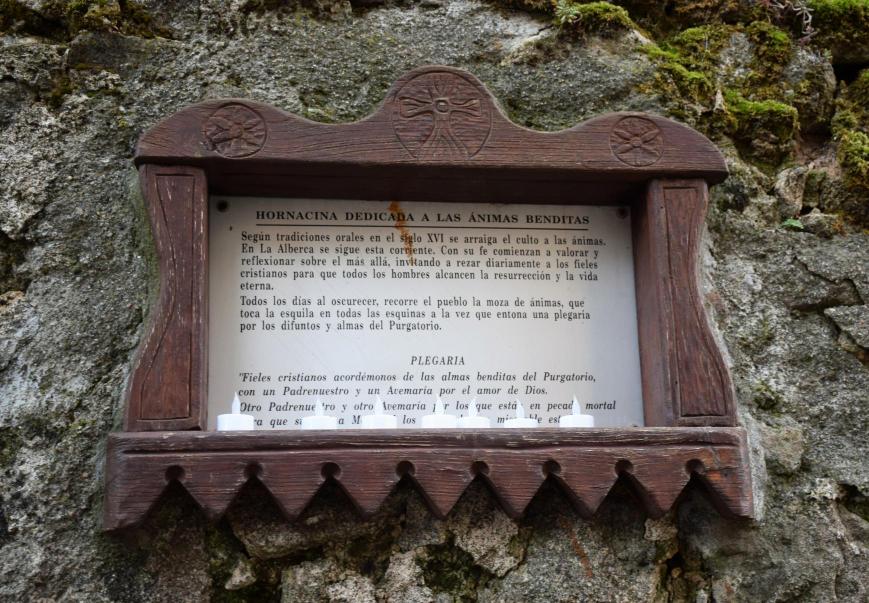 HORNACINA DEDICADA A LAS ÁNIMAS BENDITAS
Según tradiciones orales en el siglo XVI se arraiga el culto a las ánimas.
En La Alberca se sigue esta corriente. Con su fe comienzan a valorar y
reflexionar sobre el más allá, invitando a rezar diariamente a los fieles
cristianos para que todos los hombres alcancen la resurrección y la vida
eterna.
Todos los días al oscurecer, recorre el pueblo la moza de ánimas, que
toca la esquila en todas las esquinas a la vez que entona una plegaria
por los difuntos y almas del Purgatorio.
PLEGARIA
"Fieles cristianos acordémonos de las almas benditas del Purgatorio,
con un Padrenuestro y un Avemaría por el amor de Dios.
Otro Padrenuestro y otro Avemaría por los que están en pecado mortal
que su a los